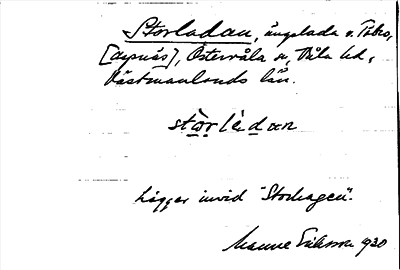 Storladan, ängslada v. Tibro,
[aspnäs], Östervåla sn, Våla hd,
Västmanlands län.
stòrlèdan
Ligger invid "Storhagen".
Manne Eriksson 1930